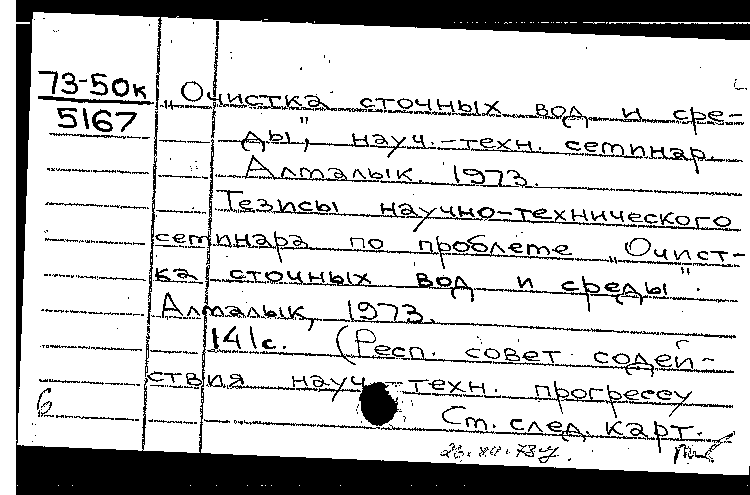 73-50к
5167
„Очистка сточных вод и сре-
ды", науч.-техн. семинар.
Алмалык. 1973.
Тезисы научно-технического
семинара по проблеме „Очист-
ка сточных вод и среды".
Алмалык, 1973.
141с. (Респ. совет содей-
ствия науч.-техн. прогрессу
См. след. карт.
6